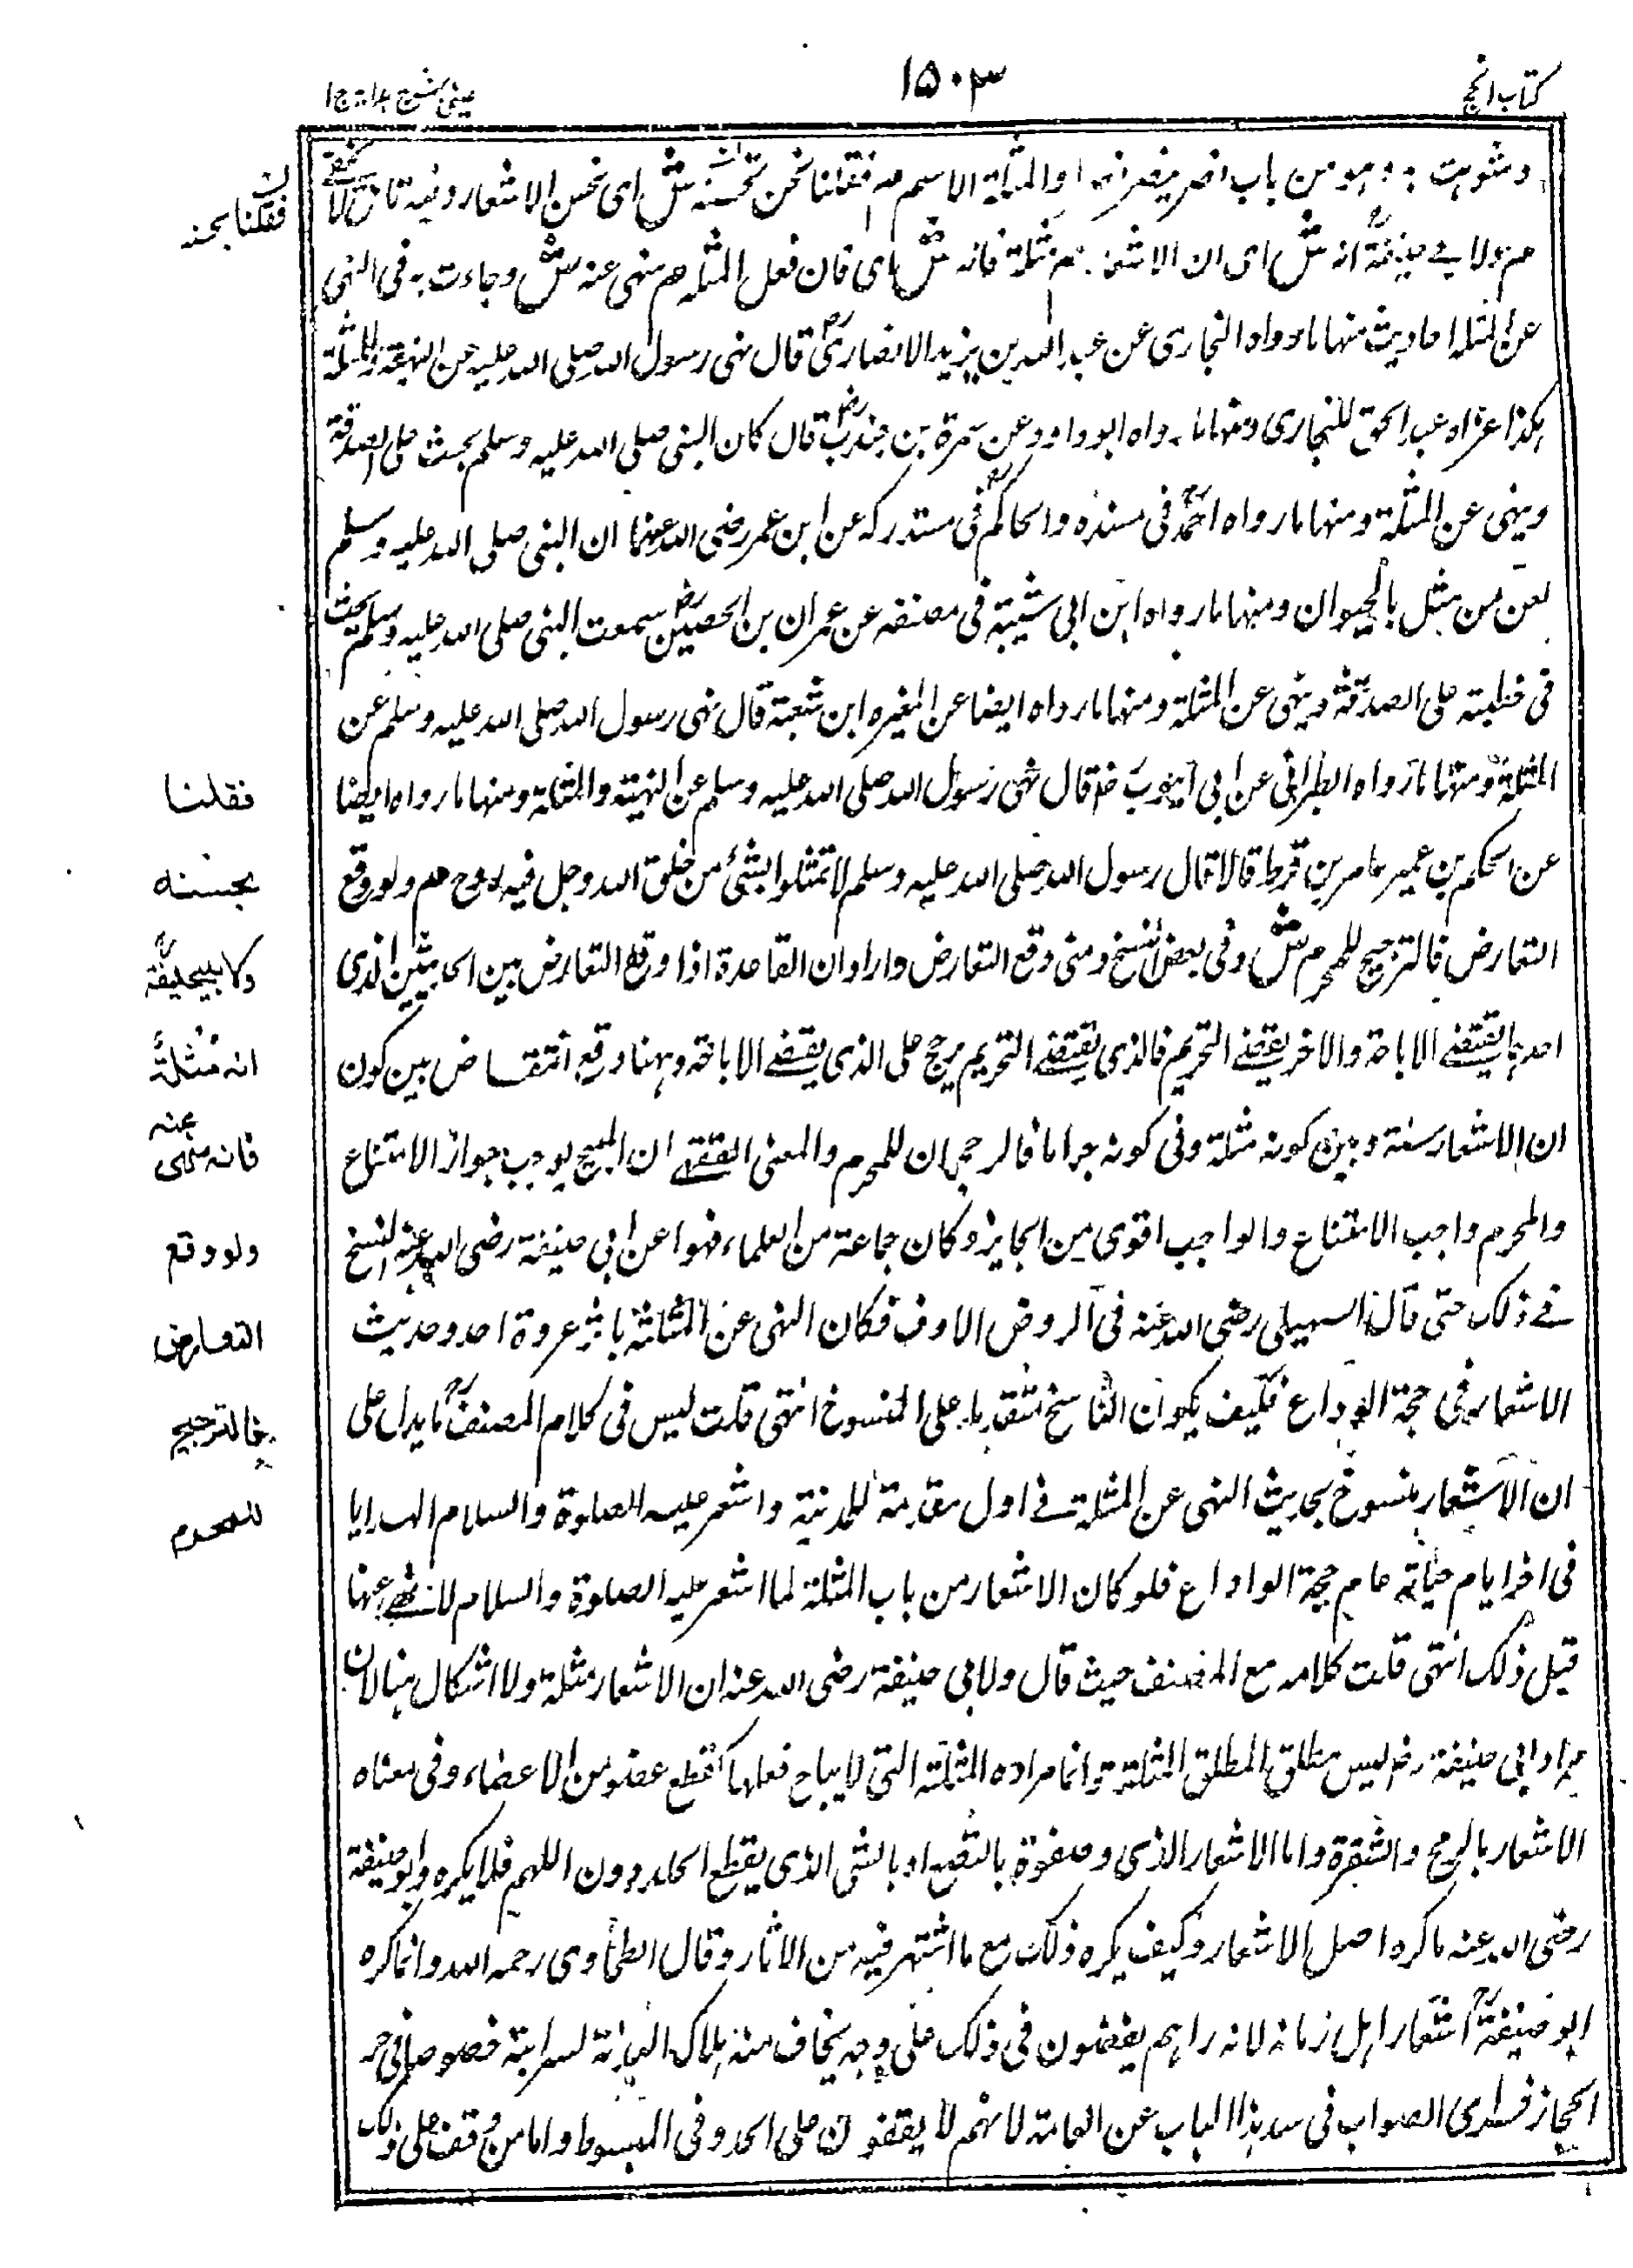 كتاب الحج
١٥٠٣
عینی شرح هدایه ج ١
وشوہت وہو من باب نصر ينصر والمثلة الاسم م فقلنا نحن بحسنه ش ای بحسن الاشعار وفيه
م ولابی حنیفة رح انہ ش ای ان الاشعار م مثلة فانہ ش ای فان فعل المثلہ م منہی عنہ ش وجاءت بہ فی النہی
عن المثلہ احادیث منہا مارواہ البخاری عن عبد اللہ بن یزید الانصاری رض قال نہی رسول اللہ صلی اللہ علیہ عن النہبة والمثلة
ہكذا عزاہ عبد الحق للبخاری ومنہا مارواہ ابو داوود عن سمرة بن جندب رض قال کان النبی صلی اللہ علیہ وسلم یحث علی الصدقة
وینہی عن المثلة ومنہا مارواہ احمد رح فی مسندہ والحاکم رح فی مستدرکہ عن ابن عمر رضی اللہ عنہما ان النبی صلی اللہ علیہ وسلم
لعن من مثل بالحیوان ومنہا مارواہ ابن ابی شیبة فی مصنفہ عن عمران بن الحصین رض سمعت النبی صلی اللہ علیہ وسلم یحث
فی خطبتہ علی الصدقة وینہی عن المثلة ومنہا مارواہ ایضا عن المغیرہ ابن شعبة قال نہی رسول اللہ صلی اللہ علیہ وسلم عن
المثلة ومنہا مارواہ الطبرانی عن ابی ایوب رض قال نہی رسول اللہ صلی اللہ علیہ وسلم عن النہبة والمثلة ومنہا مارواہ ایضا
عن الحکم بن عمیر عامر بن قرط قالا قال رسول اللہ صلی اللہ علیہ وسلم لا تمثلوا بشئ من خلق اللہ وجل فیہ روح م ولو وقع
التعارض فالترجیح للمحرم ش وفی بعض النسخ ومتی وقع التعارض واراد ان القاعدة اذا وقع التعارض بین الحدیثین الذی
احدہما یقتضی الاباحة والاخر یقتضی التحریم فالذی یقتضی التحریم یرجح علی الذی یقتضی الاباحة وہہنا وقع انتقاض بین کون
ان الاشعار سنة وبین کونہ مثلة وفی کونہ حراما فالرجحان للمحرم والمعنی الفقہی ان المبیح یوجب جواز الامتناع
والمحرم واجب الامتناع والواجب اقوی من الجایز وکان جماعة من العلماء فہموا عن ابی حنیفة رضی اللہ عنہ النسخ
فی ذلک حتی قال السہیلی رضی اللہ عنہ فی الروض الاوف فکان النہی عن المثلثة باثر عروة احد وحدیث
الاشعار فی حجة الوداع فکیف یکون الناسخ متقدما علی المنسوخ انتہی قلت لیس فی کلام المصنف رح ما یدل علی
ان الاشعار منسوخ بحدیث النہی عن المثلة فی اول مقدمة للمدینة واشعر علیہ الصلوة والسلام الہدایا
فی اخر ایام حیاتہ عام حجة الواداع فلو کان الاشعار من باب المثلة لما اشعر علیہ الصلوة والسلام لانہ نہی عنہا
قبل ذلک انتہی قلت کلامہ مع المصنف حیث قال ولابی حنیفة رضی اللہ عنہ ان الاشعار مثلة ولا اشکال ہنا لان
مراد ابی حنیفة رض لیس مطلق المطلق المثلة وانما مرادہ المثلة التی لا یباح فعلہا کقطع عضو من الاعضاء وفی معناہ
الاشعار بالرمح والشفرة واما الاشعار الذی وصفوہ بالقصد او بالشی الذی یقطع الجلد دون اللحم فلا یکرہ وابو حنیفة
رضی اللہ عنہ ماکرہ اصل الاشعار وکیف یکرہ ذلک مع ما اشتہر فیہ من الاثار وقال الطحاوی رحمہ اللہ وانما کرہ
ابو حنیفة رح اشعار اہل زمانہ لانہ راہم یفضون فی ذلک علی وجہ یخاف منہ ہلاک البدنة لسرایتہ خصوصا فی حر
الحجاز فرای الصواب فی سد ہذا الباب عن العامة لانہم لا یقفون علی الحد وفی المبسوط واما من وقف علی ذلک
فقلنا بحسنہ
فقلنا
بحسنه
ولابی حنیفة رح
انه مثلة
فانه منهی عنه
ولو وقع
التعارض
فالترجیح
للمحرم